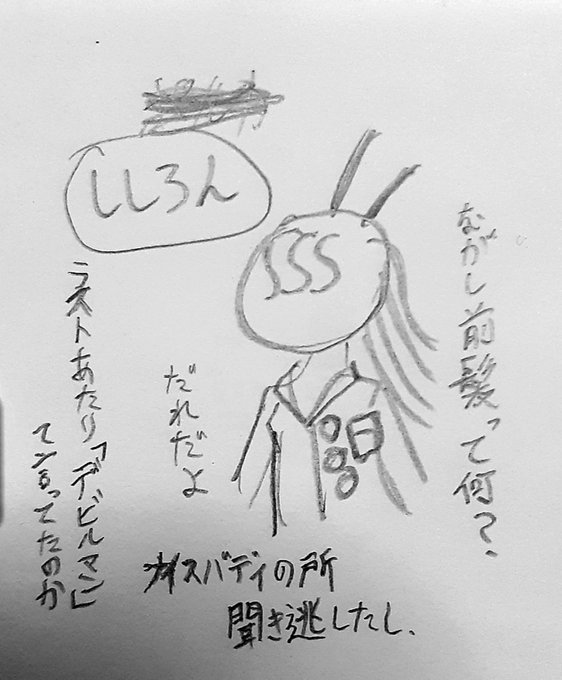 ししろん
SSS
ながし前髪って何?、
だれだよ
ラストあたり「デビルマン」
て言ってたのか
ナイスバディの所
聞き逃したし、